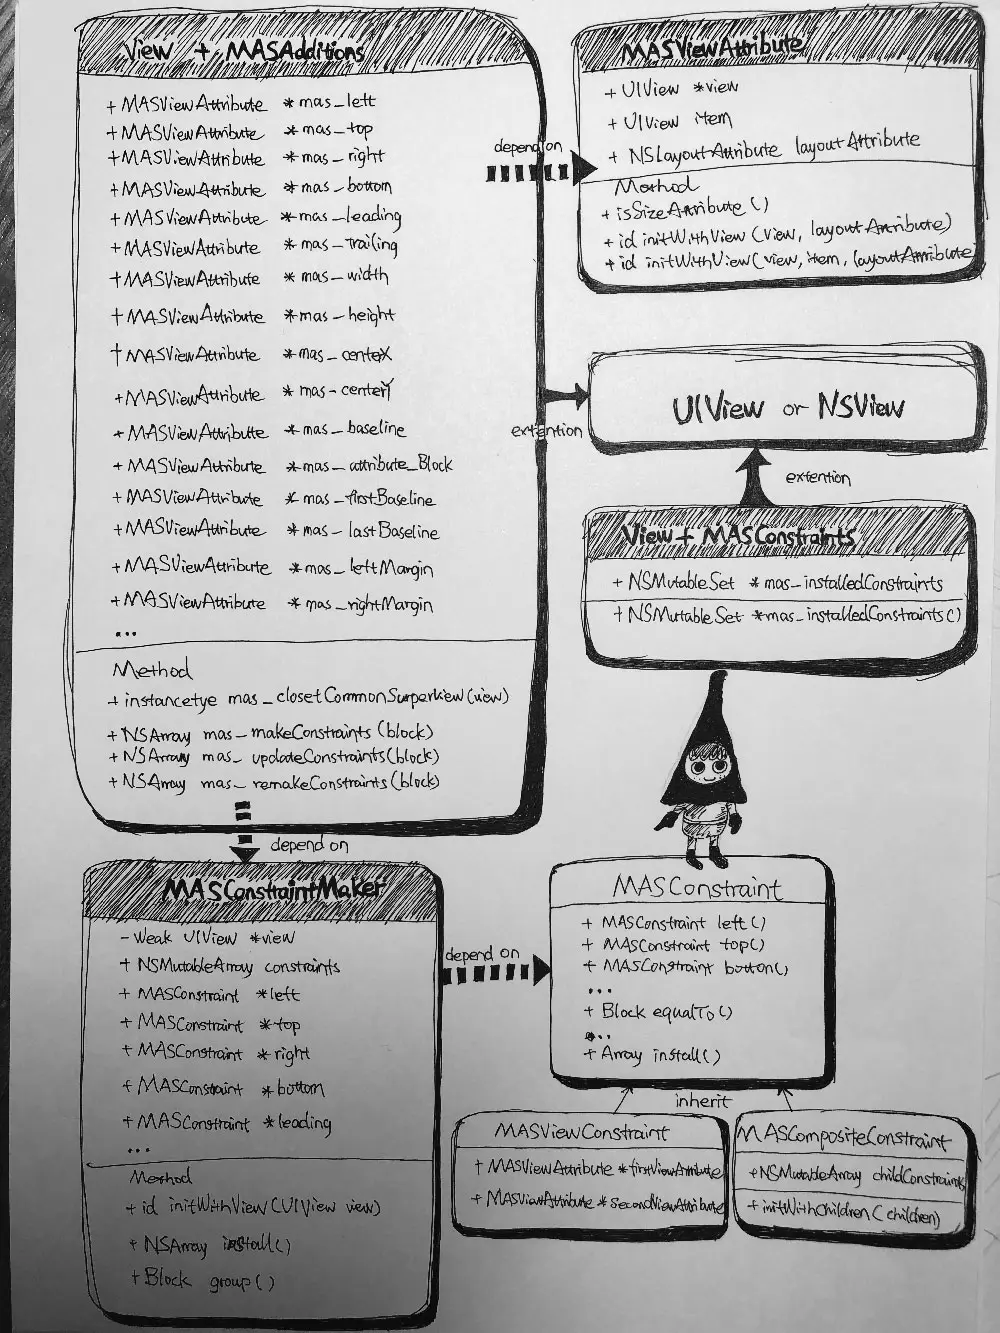 View + MASAdditions
+ MASViewAttribute * mas_left
+ MASViewAttribute * mas_top
+ MASViewAttribute * mas_right
+ MASViewAttribute * mas_bottom
+ MASViewAttribute * mas_leading
+ MASViewAttribute * mas_trailing
+ MASViewAttribute * mas_width
+ MASViewAttribute * mas_height
+ MASViewAttribute * mas_centeX
+ MASViewAttribute * mas_centerY
+ MASViewAttribute * mas_baseline
+ MASViewAttribute * mas_attribute_Block
+ MASViewAttribute * mas_firstBaseline
+ MASViewAttribute * mas_lastBaseline
+ MASViewAttribute * mas_leftMargin
+ MASViewAttribute * mas_rightMargin
...
Method
+ instancetye mas_closetCommonSurperView(view)
+ NSArray mas_makeConstraints(block)
+ NSArray mas_updateConstraints(block)
+ NSArray mas_remakeConstraints(block)
depend on
MASViewAttribute
+ UIView *view
+ UIView item
+ NSLayoutAttribute layoutAttribute
Method
+ isSizeAttribute()
+ id initWithView(view, layoutAttribute)
+ id initWithView(view, item, layoutAttribute
extention
UIView or NSView
extention
View + MASConstraints
+ NSMutableSet *mas_installedConstraints
+ NSMutableSet *mas_installedConstraints()
depend on
MASConstraintMaker
- Weak UIView *view
+ NSMutableArray constraints
+ MASConstraint *left
+ MASConstraint *top
+ MASConstraint *right
+ MASConstraint *bottom
+ MASConstraint *leading
...
Method
+ id initWithView(UIView view)
+ NSArray install()
+ Block group()
depend on
MASConstraint
+ MASConstraint left()
+ MASConstraint top()
+ MASConstraint botton()
...
+ Block equalTo()
...
+ Array install()
inherit
MASViewConstraint
+ MASViewAttribute *firstViewAttribute
+ MASViewAttribute *secondViewAttribute
MASCompositeConstraint
+NSMutableArray childConstraints
+initWithChildren(children)